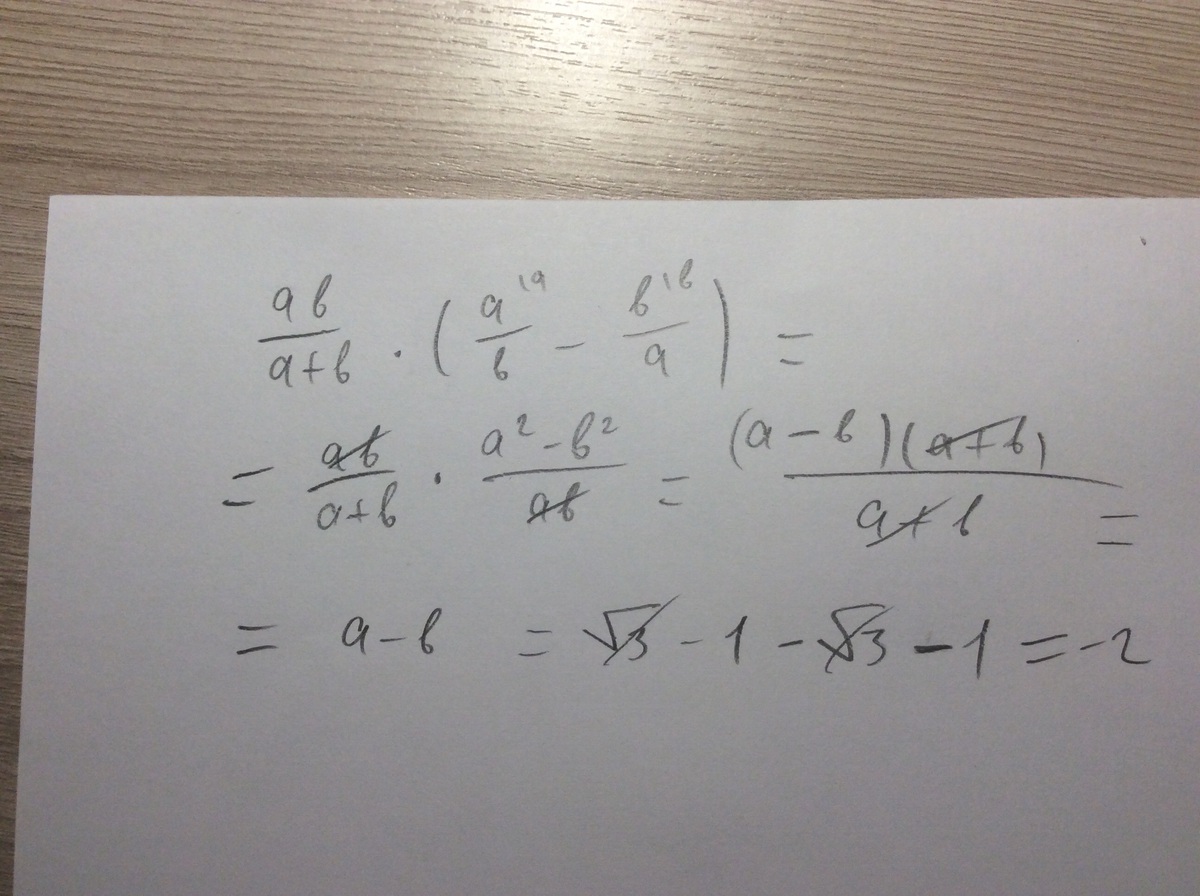 ab/(a+b) · (a^\a/b - b^\b/a) =
= ab/(a+b) · (a²-b²)/ab = (a-b)(a+b)/(a+b) =
= a-b = √3 - 1 - √3 - 1 = -2